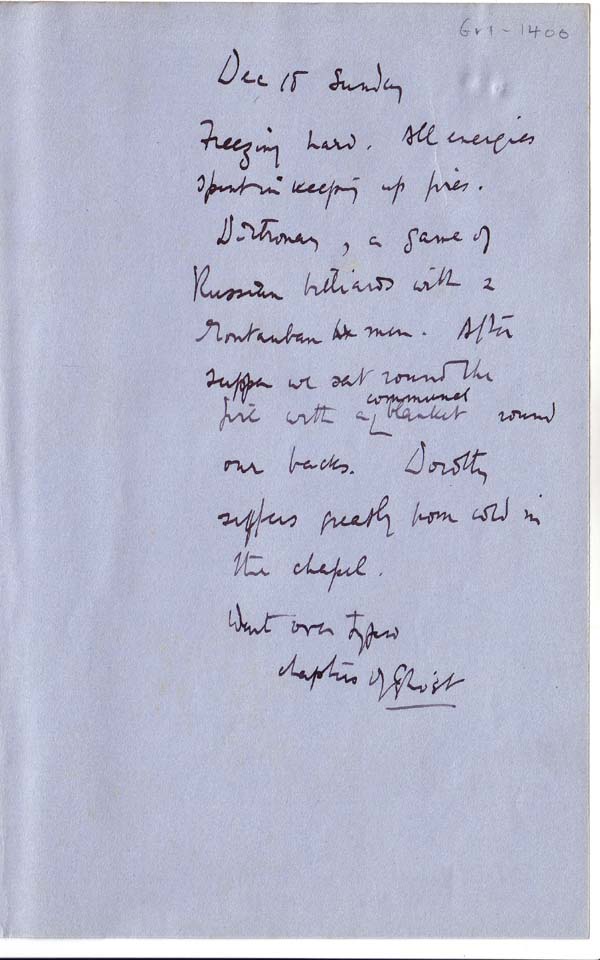 Gr1-1400
Dec 18 Sunday
Freezing hard. All energies
spent in keeping up fires.
Dictionary, a game of
Russian billiards with 2
Montauban men. After
supper we sat round the
fire with a communal blanket round
our backs. Dorothy
suffers greatly from cold in
the chapel.
Went over typed
chapters of Ghost